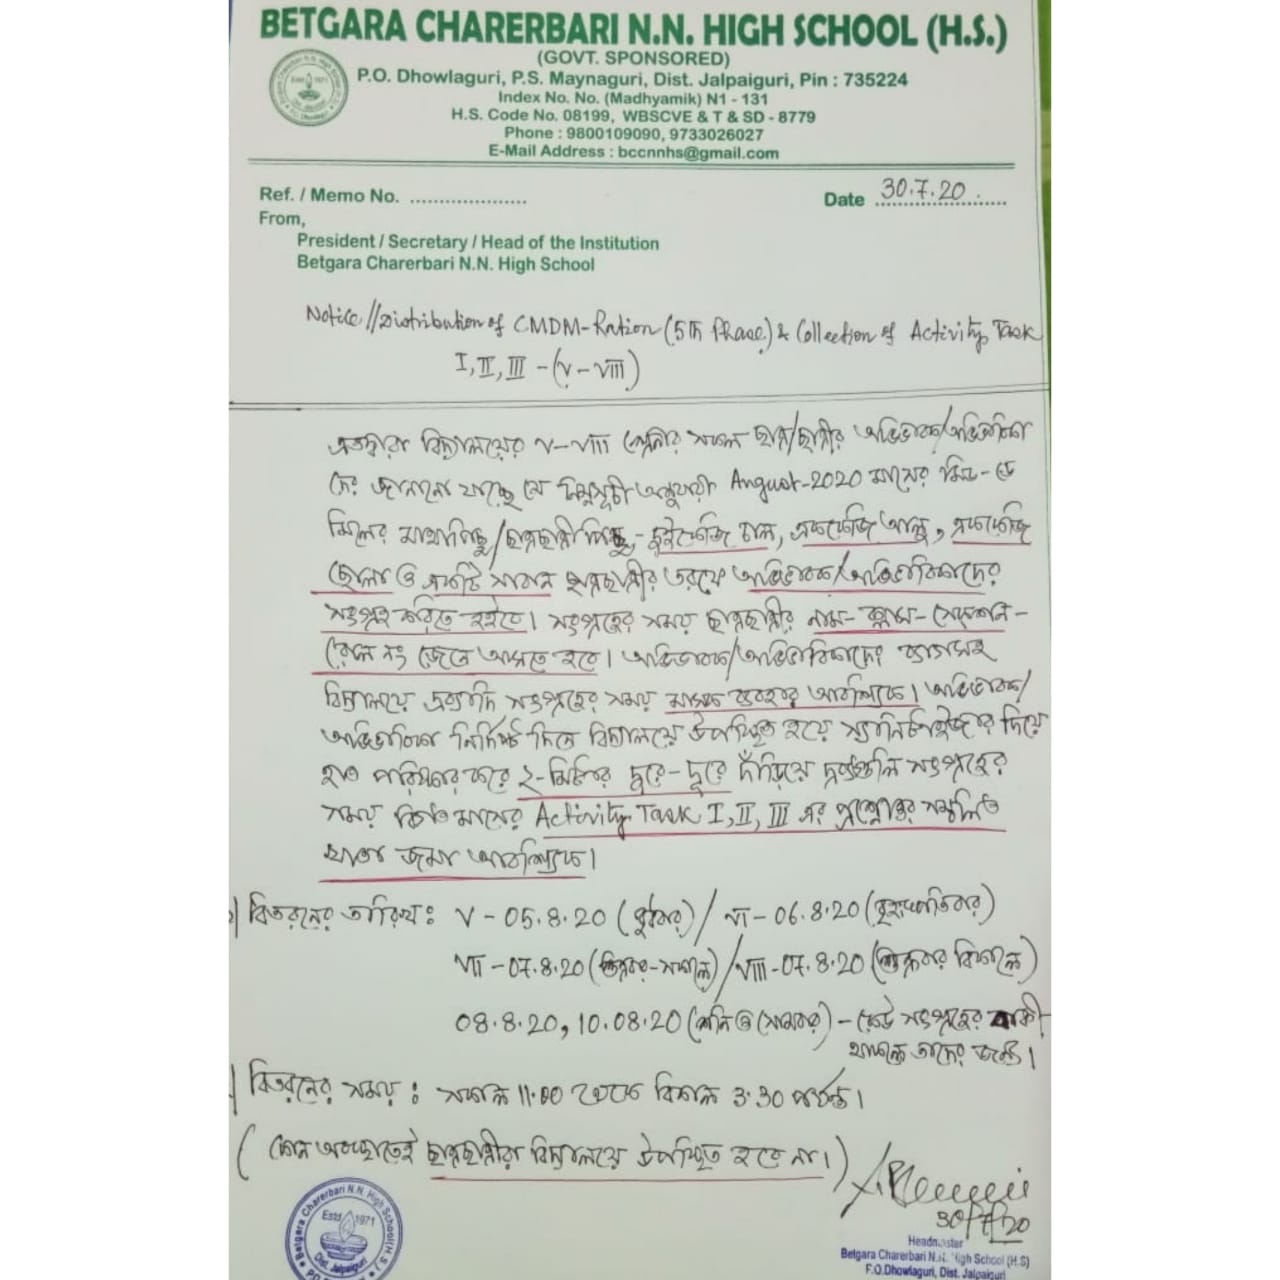 BETGARA CHARERBARI N.N. HIGH SCHOOL (H.S.)
(GOVT. SPONSORED)
P.O. Dhowlaguri, P.S. Maynaguri, Dist. Jalpaiguri, Pin : 735224
Index No. No. (Madhyamik) N1 - 131
H.S. Code No. 08199, WBSCVE & T & SD - 8779
Phone : 9800109090, 9733026027
E-Mail Address : bccnnhs@gmail.com
Ref. / Memo No. ....................
Date 30.7.20
From,
President / Secretary / Head of the Institution
Betgara Charerbari N.N. High School
Notice // Distribution of CMDM-Ration (5th Phase) & Collection of Activity Task
I, II, III - (V - VIII)
এতদ্বারা বিদ্যালয়ের V-VIII শ্রেনীর সকল ছাত্র/ছাত্রীর অভিভাবক/অভিভাবিকা
দের জানানো যাচ্ছে যে নিম্নসূচী অনুযায়ী August-2020 মাসের মিড-ডে
মিলের মাথাপিছু/ছাত্রছাত্রী পিছু - দুইকেজি চাল, এককেজি আলু, এককেজি
ছোলা ও একটি সাবান ছাত্রছাত্রীর তরফে অভিভাবক/অভিভাবিকাদের
সংগ্রহ করিতে হইবে। সংগ্রহের সময় ছাত্রছাত্রীর নাম-ক্লাস-সেকশান-
রোল নং জেনে আসতে হবে। অভিভাবক/অভিভাবিকাদের ব্যাগসহ
বিদ্যালয়ে দ্রব্যাদি সংগ্রহের সময় মাস্ক ব্যবহার আবশ্যিক। অভিভাবক/
অভিভাবিকা নির্দিষ্ট দিনে বিদ্যালয়ে উপস্থিত হয়ে স্যানিটাইজার দিয়ে
হাত পরিষ্কার করে ২-মিটার দূরে-দূরে দাঁড়িয়ে দ্রব্যগুলি সংগ্রহের
সময় বিগত মাসের Activity Task I, II, III এর প্রশ্নোত্তর সম্বলিত
খাতা জমা আবশ্যিক।
বিতরনের তারিখ : V - 05.8.20 (বুধবার) / VI - 06.8.20 (বৃহস্পতিবার)
VII - 07.8.20 (শুক্রবার-সকালে) / VIII - 07.8.20 (শুক্রবার বিকালে)
08.8.20, 10.08.20 (শনি ও সোমবার) - কেউ সংগ্রহের বাকী
থাকলে তাদের জন্য।
বিতরনের সময় : সকাল 11:00 থেকে বিকাল 3.30 পর্যন্ত।
(কোন অবস্থাতেই ছাত্রছাত্রীরা বিদ্যালয়ে উপস্থিত হবে না।)
30/7/20
Headmaster
Betgara Charerbari N.N. High School (H.S)
P.O.Dhowlaguri, Dist. Jalpaiguri
Betgara Charerbari N.N. High School (H.S.)
Estd. 1971
Dist. Jalpaiguri